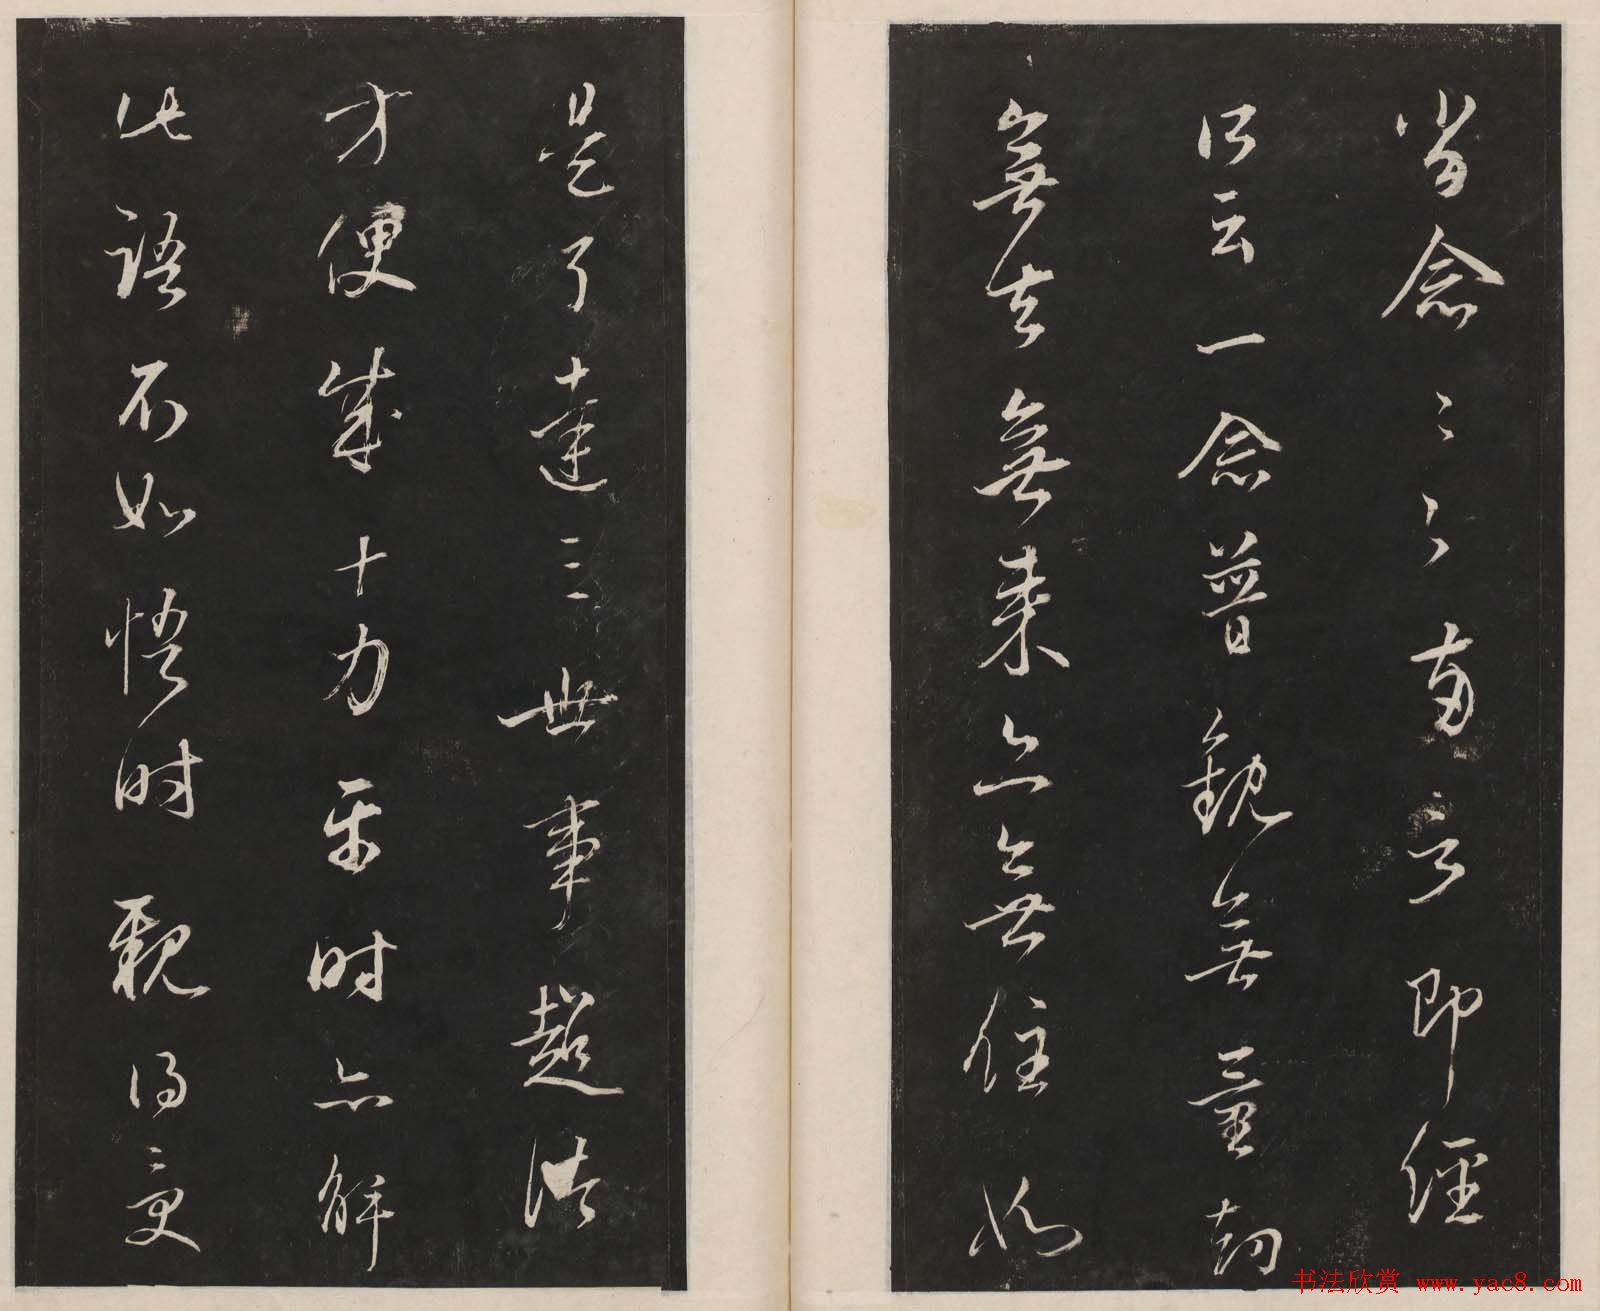 當念念之再言即經
所云一念普觀無量劫
無去無来亦無住如
是了達三世事超諸
方便成十力平時亦解
此語不如悟時親得更
书法欣赏 www.yac8.com